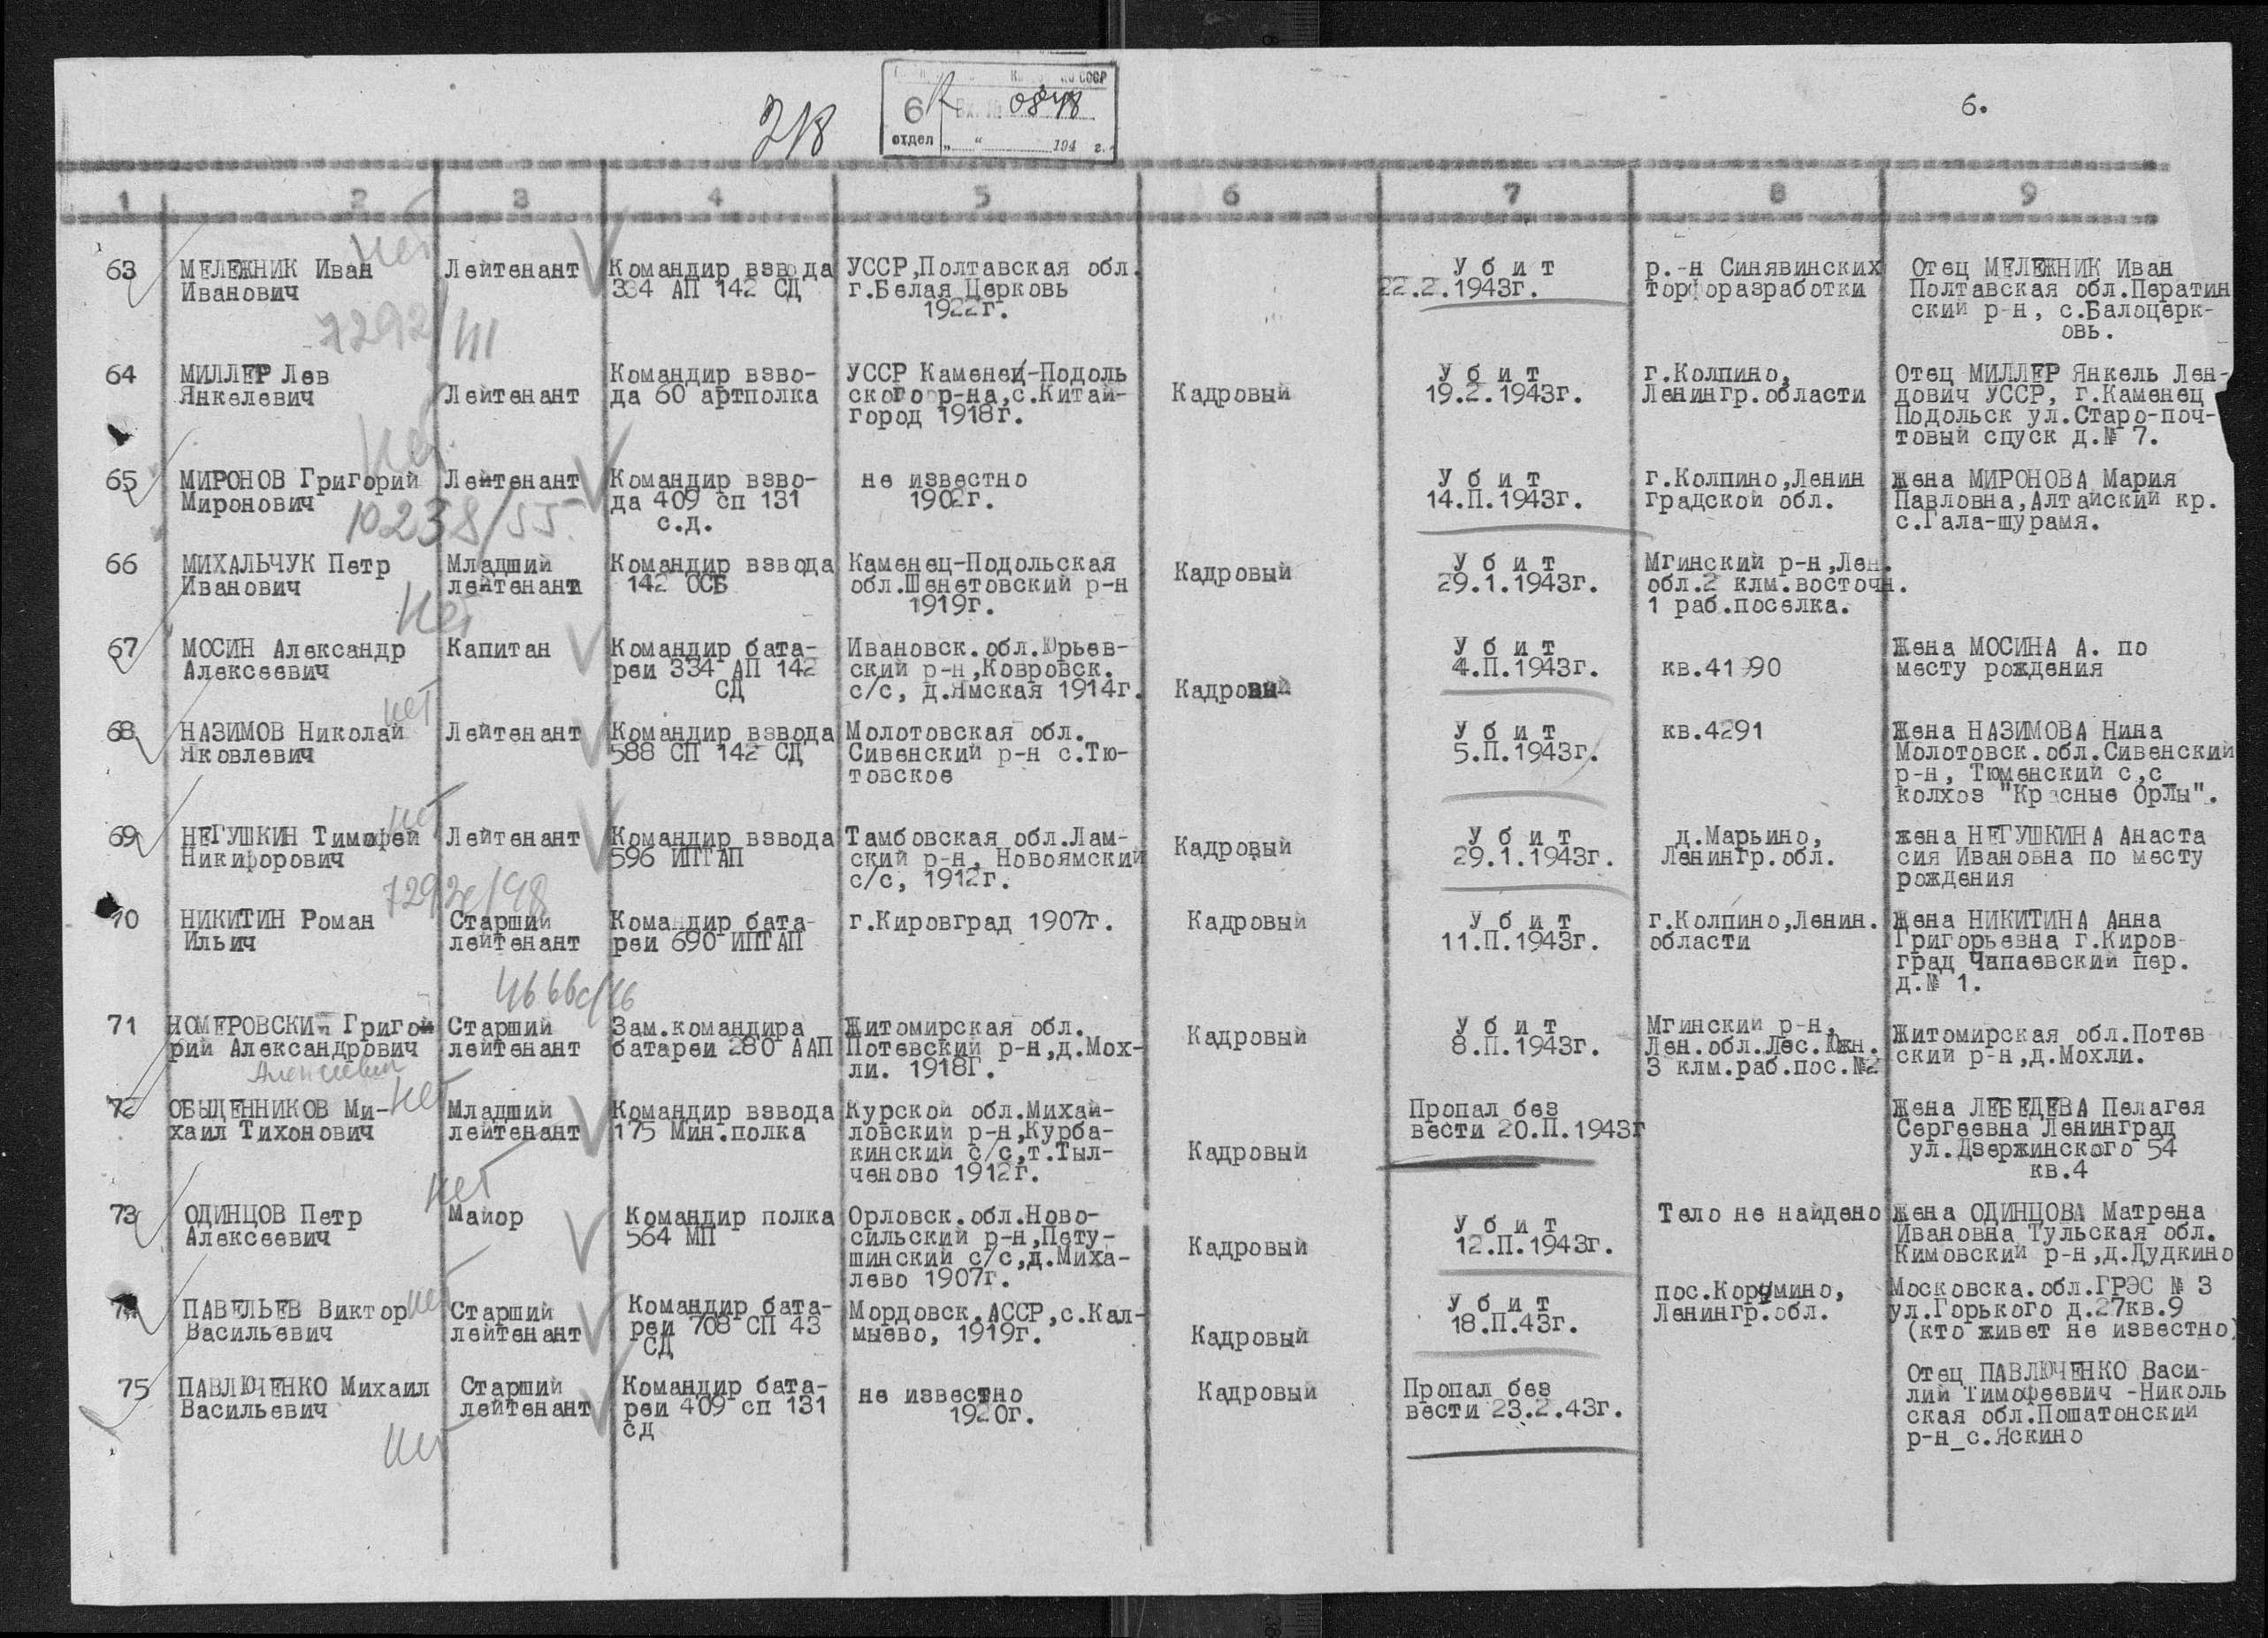 218
СССР
6
Вх.№ 0848
отдел „ “ 194 г.
6.
1 2 3 4 5 6 7 8 9
63
МЕЛЕЖНИК Иван
Иванович
нет
7292/111
Лейтенант
Командир взвода
334 АП 142 СД
УССР,Полтавская обл.
г.Белая Церковь
1922г.
У б и т
22.2.1943г.
р.-н Синявинских
торфоразработки
Отец МЕЛЕЖНИК Иван
Полтавская обл.Ператин
ский р-н, с.Балоцерк-
овь.
64
МИЛЛЕР Лев
Янкелевич
Лейтенант
Командир взво-
да 60 артполка
УССР Каменец-Подоль
ского р-на,с.Китай-
город 1918г.
Кадровый
У б и т
19.2.1943г.
г.Колпино,
Ленингр.области
Отец МИЛЛЕР Янкель Лен-
дович УССР, г.Каменец
Подольск ул.Старо-поч-
товый спуск д.№ 7.
65
нет
МИРОНОВ Григорий
Миронович
10238/55
Лейтенант
Командир взво-
да 409 сп 131
с.д.
не известно
1902г.
У б и т
14.П.1943г.
г.Колпино,Ленин
градской обл.
Жена МИРОНОВА Мария
Павловна,Алтайский кр.
с.Гала-шурамя.
66
МИХАЛЬЧУК Петр
Иванович
Младший
лейтенант
Командир взвода
142 ОСБ
Каменец-Подольская
обл.Шенетовский р-н
1919г.
Кадровый
У б и т
29.1.1943г.
Мгинский р-н,Лен.
обл.2 клм.восточн.
1 раб.поселка.
67
нет
МОСИН Александр
Алексеевич
Капитан
Командир бата-
реи 334 АП 142
СД
Ивановск.обл.Юрьев-
ский р-н,Ковровск.
с/с, д.Ямская 1914г.
Кадровый
У б и т
4.П.1943г.
кв.41 90
Жена МОСИНА А. по
месту рождения
68
нет
НАЗИМОВ Николай
Яковлевич
Лейтенант
Командир взвода
588 СП 142 СД
Молотовская обл.
Сивенский р-н с.Тю-
товское
У б и т
5.П.1943г.
кв.4291
Жена НАЗИМОВА Нина
Молотовск.обл.Сивенский
р-н, Тюменский с,с
колхоз "Красные Орлы".
69
нет
НЕГУШКИН Тимофей
Никифорович
Лейтенант
Командир взвода
596 ИПТАП
Тамбовская обл.Лам-
ский р-н, Новоямский
с/с, 1912г.
Кадровый
У б и т
29.1.1943г.
д.Марьино,
Ленингр.обл.
жена НЕГУШКИНА Анаста
сия Ивановна по месту
рождения
10
НИКИТИН Роман
Ильич
Старший
лейтенант
Командир бата-
реи 690 ИПТАП
г.Кировград 1907г.
Кадровый
У б и т
11.П.1943г.
г.Колпино,Ленин.
области
Жена НИКИТИНА Анна
Григорьевна г.Киров-
град Чапаевский пер.
д.№ 1.
71
НОМЕРОВСКИй Григой
рий Александрович
Алексеевич
Старший
лейтенант
Зам.командира
батареи 280 ААП
Житомирская обл.
Потевский р-н,д.Мох-
ли. 1918г.
Кадровый
У б и т
8.П.1943г.
Мгинский р-н,
Лен.обл.Лес.Южн.
3 клм.раб.пос.№2
Житомирская обл.Потев
ский р-н,д.Мохли.
72
нет
ОБЫДЕННИКОВ Ми-
хаил Тихонович
Младший
лейтенант
Командир взвода
175 Мин.полка
Курской обл.Михай-
ловский р-н,Курба-
кинский с/с,т.Тыл-
ченово 1912г.
Кадровый
Пропал без
вести 20.П.1943г
Жена ЛЕБЕДЕВА Пелагея
Сергеевна Ленинград
ул.Дзержинского 54
кв.4
73
нет
ОДИНЦОВ Петр
Алексеевич
Майор
Командир полка
564 МП
Орловск.обл.Ново-
сильский р-н,Пету-
шинский с/с,д.Миха-
лево 1907г.
Кадровый
У б и т
12.П.1943г.
Тело не найдено
Жена ОДИНЦОВА Матрена
Ивановна Тульская обл.
Кимовский р-н,д.Дудкино
нет
ПАВЕЛЬЕВ Виктор
Васильевич
Старший
лейтенант
Командир бата-
реи 708 СП 43
СД
Мордовск.АССР,с.Кал-
мыево, 1919г.
Кадровый
У б и т
18.П.43г.
Ленингр.обл.
Московска.обл.ГРЭС № 3
ул.Горького д.27кв.9
(кто живет не известно)
75
ПАВЛЮЧЕНКО Михаил
Васильевич
нет
Старший
лейтенант
Командир бата-
реи 409 сп 131
сд
не известно
1920г.
Кадровый
Пропал без
вести 23.2.43г.
Отец ПАВЛЮЧЕНКО Васи-
лий Тимофеевич -Николь
ская обл.Пошатонский
р-н_с.Яскино